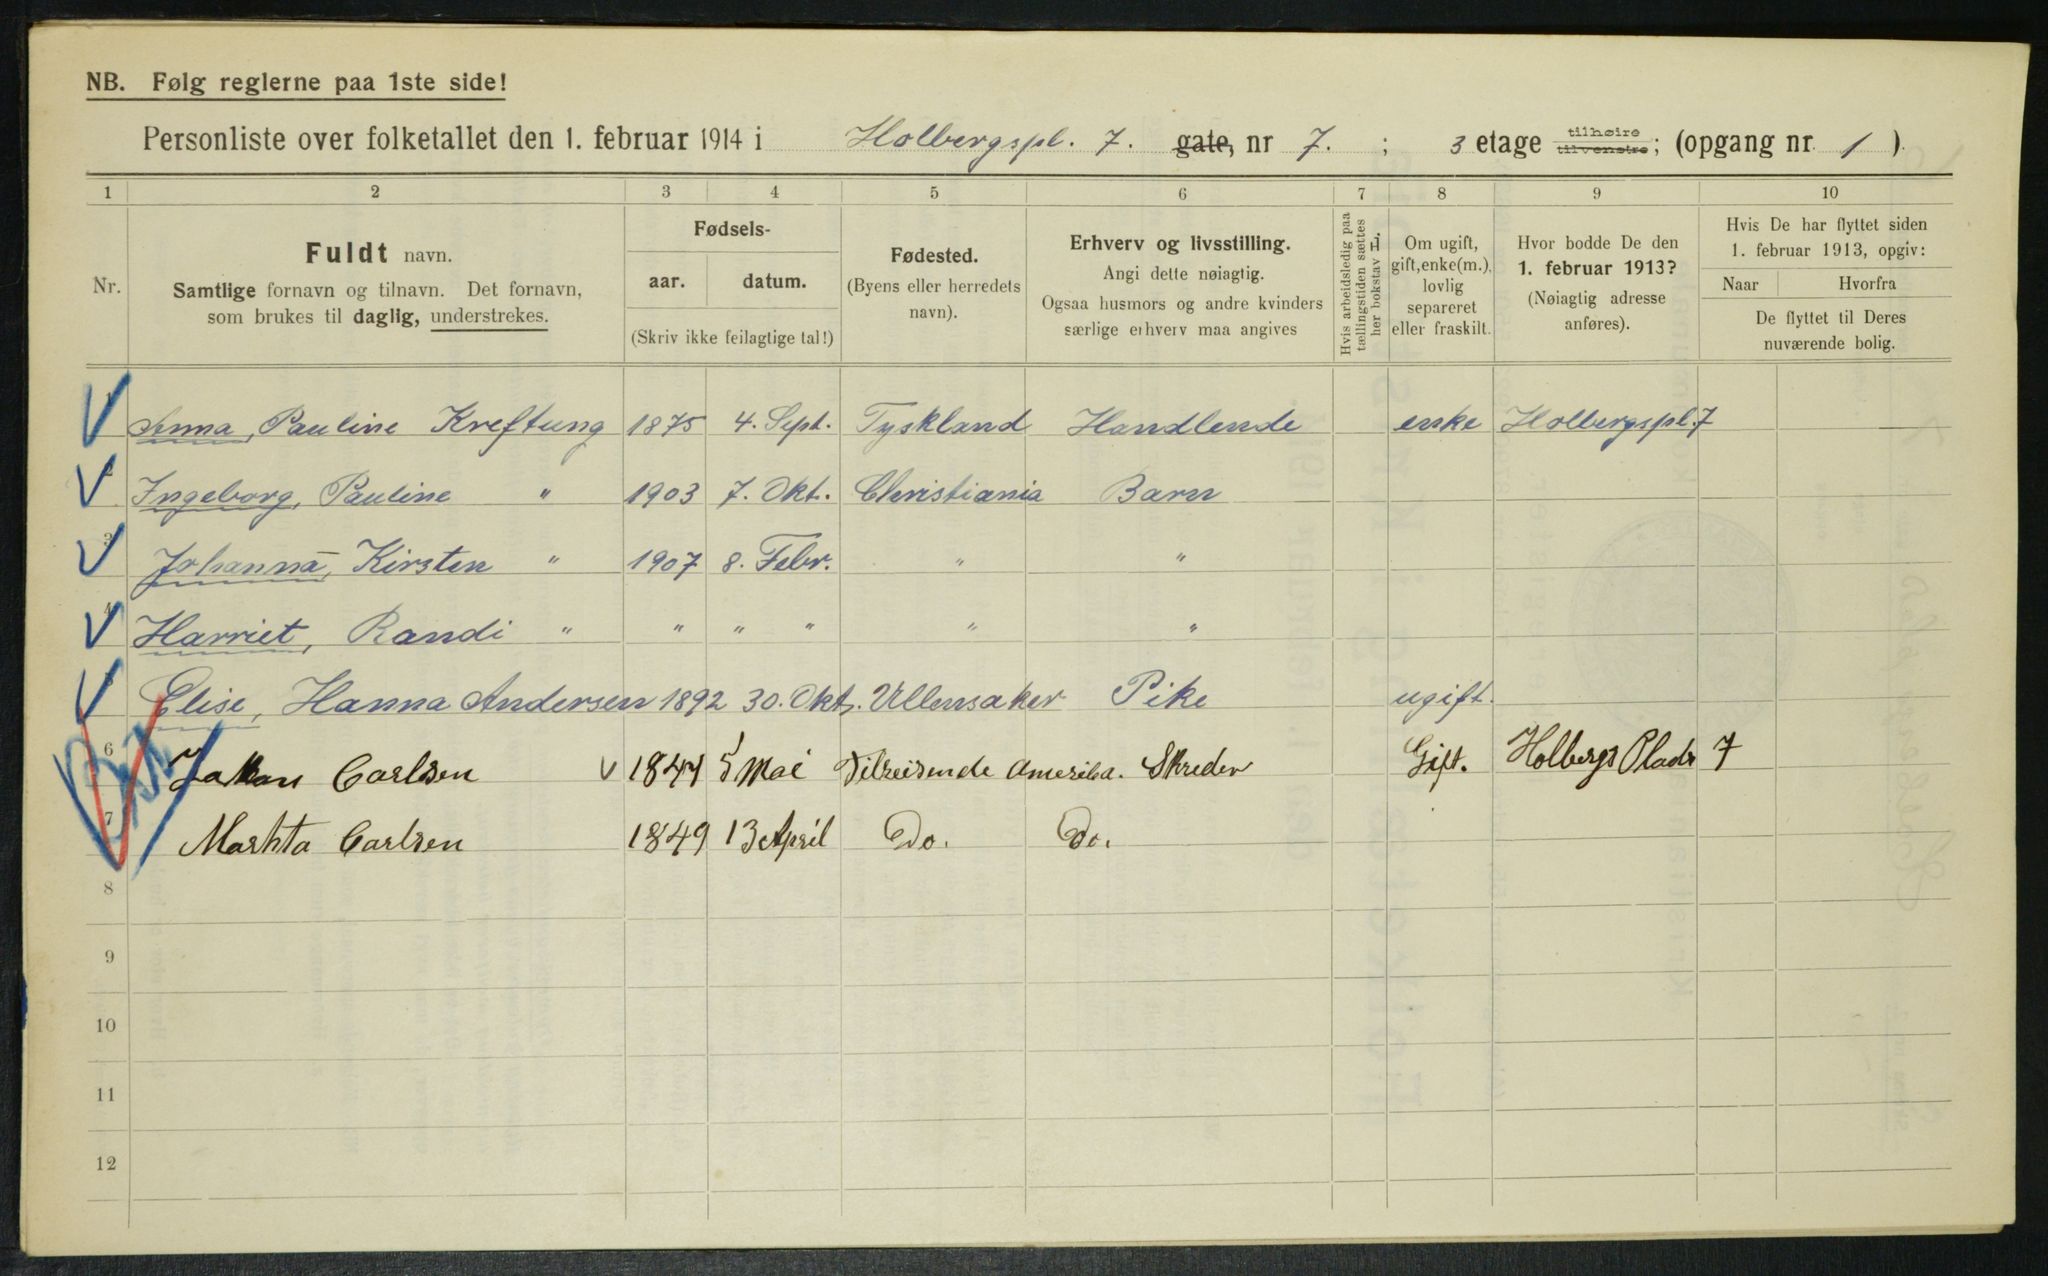 NB. Følg reglerne paa 1ste side!
Personliste over folketallet den 1. februar 1914 i Holbergspl. 7. gate, nr 7. ; 3 etage tilhøire tilvenstre; (opgang nr 1 )
1 2 3 4 5 6 7 8 9 10
Nr.
Fuldt navn.
Samtlige fornavn og tilnavn. Det fornavn,
som brukes til daglig, understrekes.
Fødsels-
aar. datum.
(Skriv ikke feilagtige tal!)
Fødested.
(Byens eller herredets
navn).
Erhverv og livsstilling.
Angi dette nøiagtig.
Ogsaa husmors og andre kvinders
særlige erhverv maa angives
Hvis arbeidsledig paa
tællingstiden sættes
her bokstav L.
Om ugift,
gift, enke(m.),
lovlig
separeret
eller fraskilt.
Hvor bodde De den
1. februar 1913?
(Nøiagtig adresse
anføres).
Hvis De har flyttet siden
1. februar 1913, opgiv:
Naar Hvorfra
De flyttet til Deres
nuværende bolig.
Anna, Pauline Kreftung 1875 4. Sept. Tyskland Handlende enke Holbergspl. 7
2 Ingeborg, Pauline " 1903 7. Okt. Christiania Barn
3 Johanna, Kirsten " 1907 8. Febr. " "
4 Harriet, Randi " " " " " "
5 Elise, Hanna Andersen 1892 30. Okt. Ullensaker Pike ugift.
6 Carlsen 5 Mai Tilreisende Amerika. Skreder Gift. Holbergs Plads 7
7 Martha Carlsen 1849 13 April Do. Do.
8
9
10
11
12